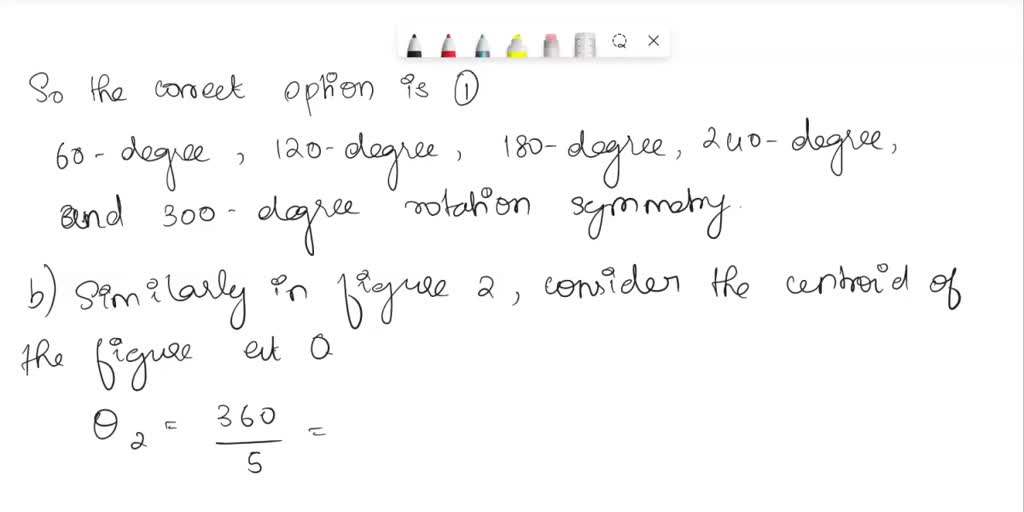 So the correct option is ①
60-degree, 120-degree, 180-degree, 240-degree,
and 300-degree rotation symmetry.
b) Similarly in figure 2, consider the centroid of
the figure at O
θ₂ = 360/5 =